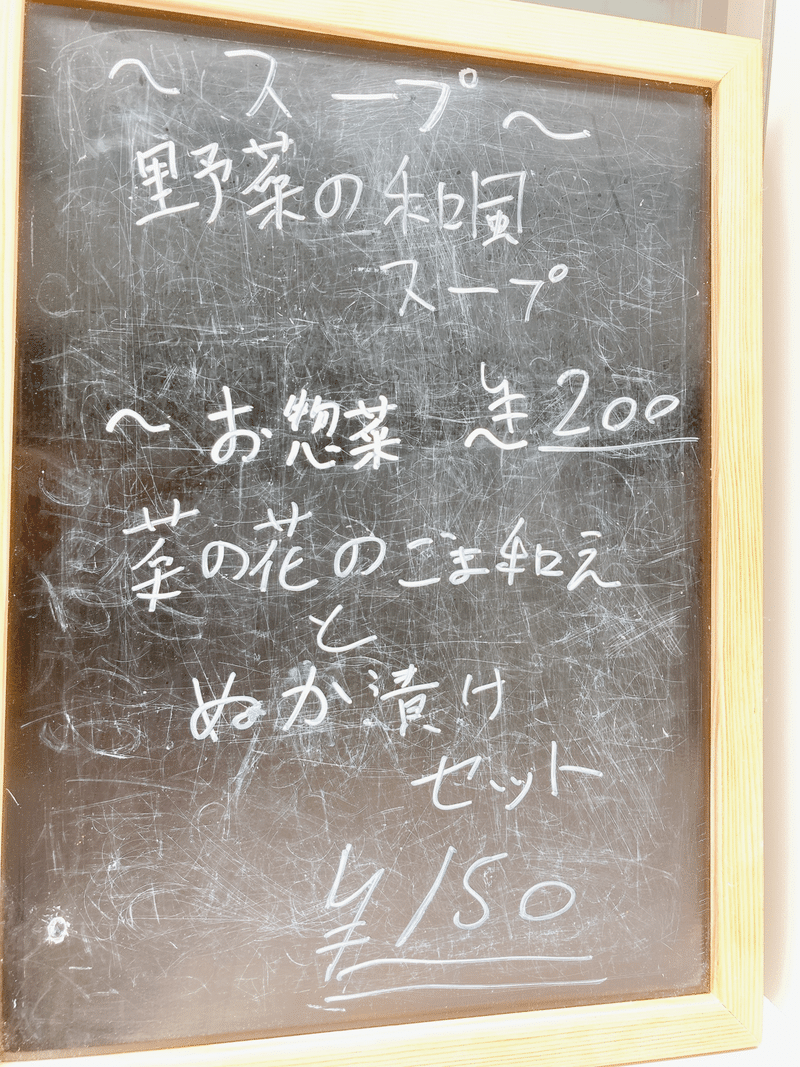 ～スープ～
野菜の和風
スープ
¥200
～お惣菜～
菜の花のごま和え
と
ぬか漬け
セット
¥150